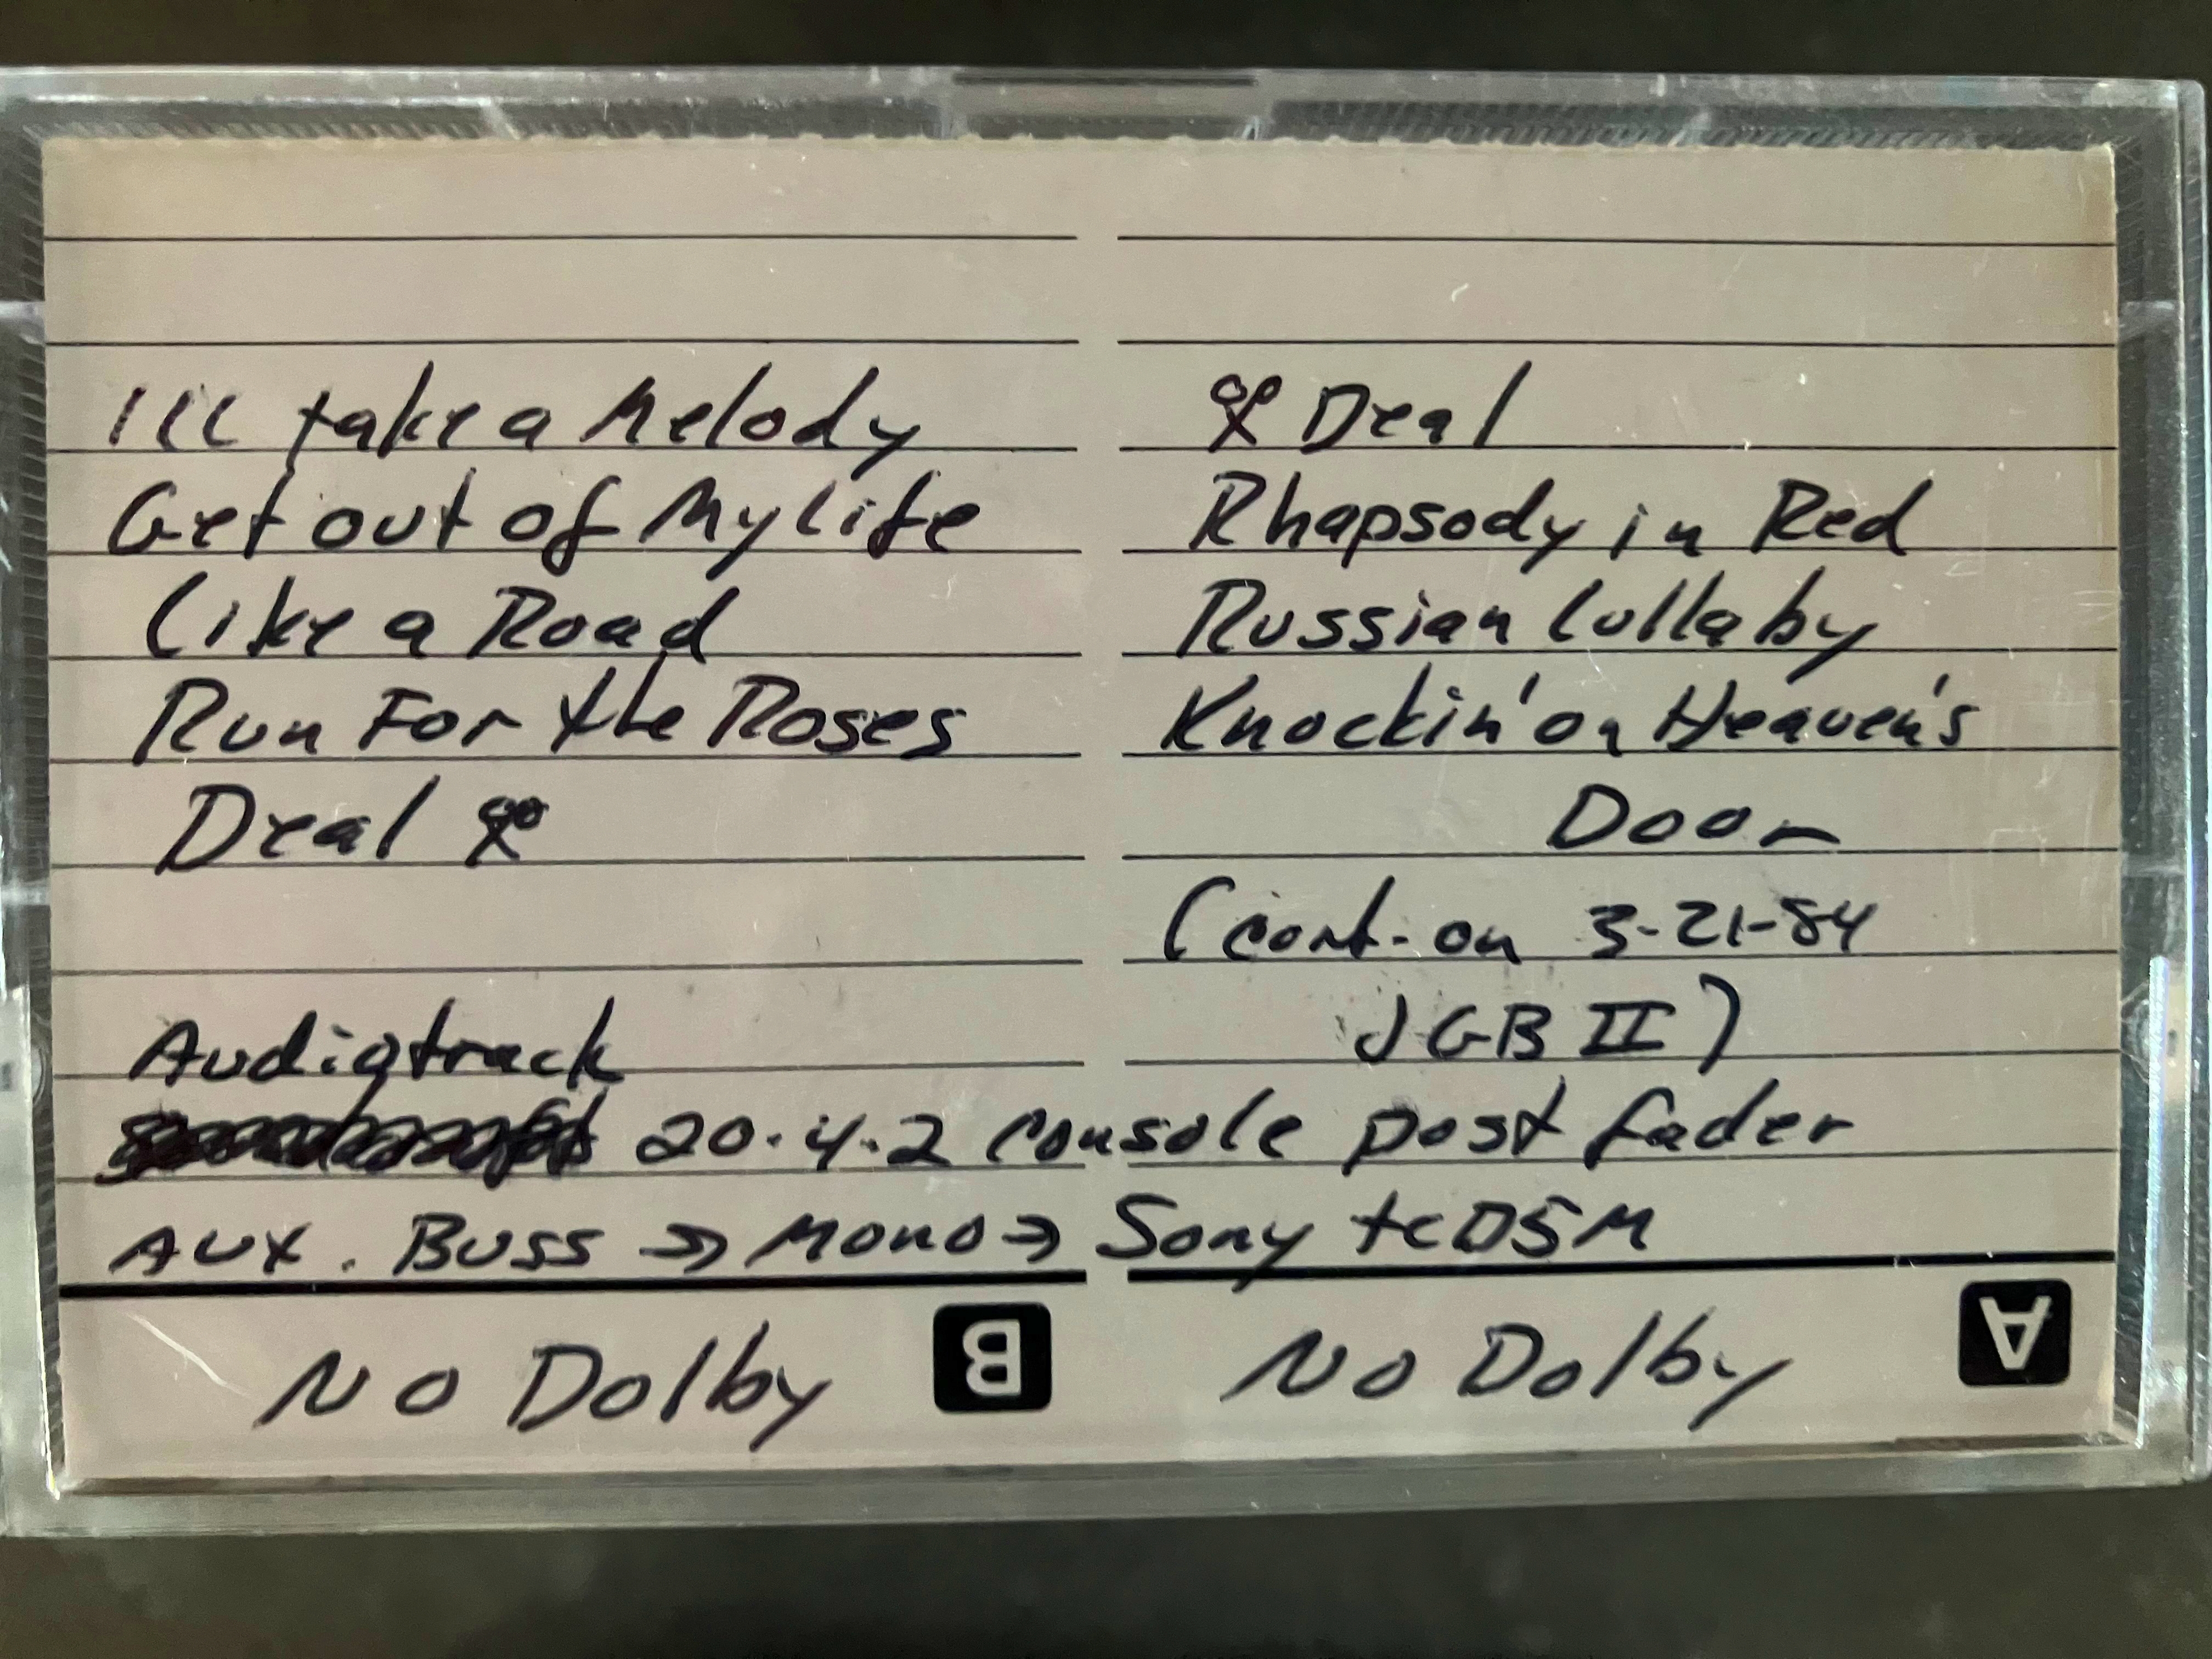 Ill take a Melody
Get out of My Life
Like a Road
Run For the Roses
Deal
Deal
Rhapsody in Red
Russian Lullaby
Knockin' on Heaven's
Door
(cont. on 3-21-84
JGB II)
Audiotrack
20.4.2 console post fader
Aux. Buss → Mono → Sony tcD5M
No Dolby B
No Dolby A